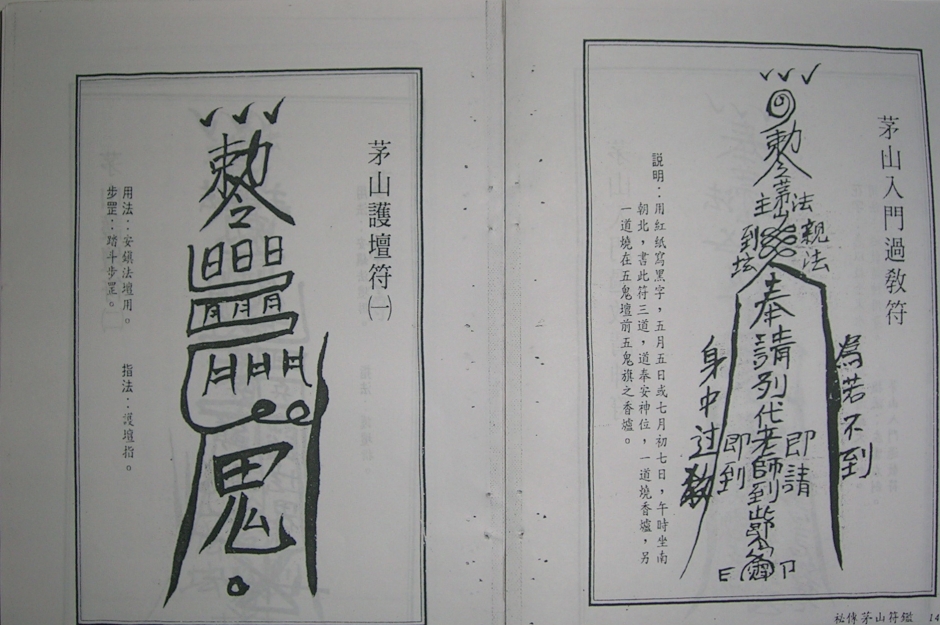 茅山入門過教符
說明：用紅紙寫黑字，五月五日或七月初七日，午時坐南
朝北，書此符三道，道奉安神位，一道燒香爐，另
一道燒在五鬼壇前五鬼旗之香爐。
勅令茅山
法親法
主到坛
奉請列代老師到
即請
即到
為若不到
身中过教
祕傳茅山符鑑 14
茅山護壇符㈠
勅令
日日日
月月月
鬼
用法：安鎮法壇用。 指法：護壇指。
步罡：踏斗步罡。